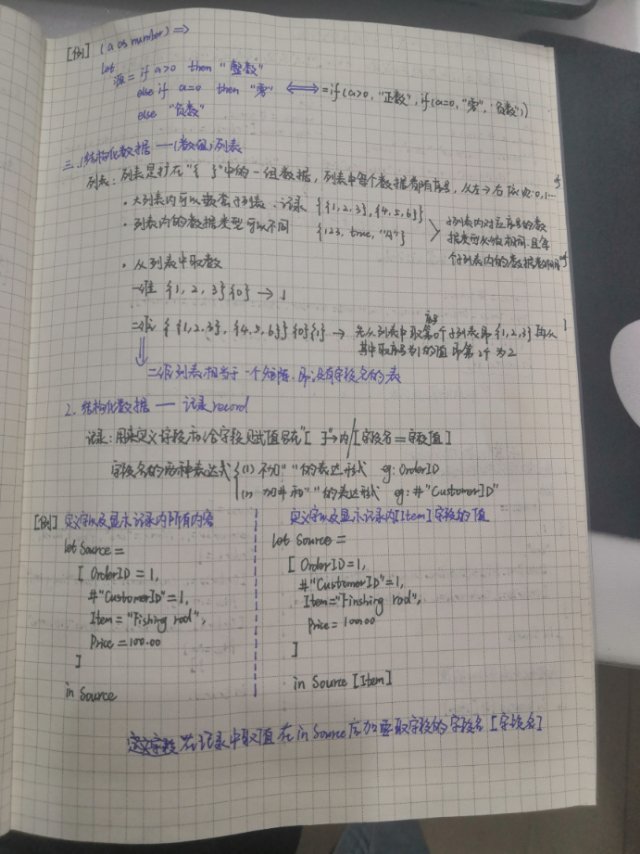 [例] (a as number) =>
let
源 = if a>0 then "整数"
else if a=0 then "零" <=> =if(a>0,"正数",if(a=0,"零","负数"))
else "负数"
三.1结构化数据 — (数组)列表
列表：列表是打在"{ }"中的一组数据，列表中每个数据皆有序号，从左→右依次:0,1...
· 大列表内可以嵌套子列表、记录 {{1,2,3},{4,5,6}}
· 列表内的数据类型可以不同 {123, true, "A"}
子列表内对应序号的数
据类型必须相同,且每
个子列表内的数据数相同
· 从列表中取数
一维 {1,2,3}{0} → 1
二维 {{1,2,3},{4,5,6}}{0}{1} → 先从列表中取序号0个子列表即{1,2,3}再从
其中取序号为1的值 即第2个为2
二维列表相当于一个矩阵，即没有字段名的表
2. 结构化数据 — 记录record
记录：用来定义字段和给字段赋值 "[ ]"→内/[字段名=字段值]
字段名的两种表达式 (1) 不加" "的表达形式 eg: OrderID
加#和" "的表达形式 eg: #"CustomerID"
[例] 定义字以及显示记录内所有内容
let Source =
[ OrderID = 1,
#"CustomerID"=1,
Item = "Fishing rod",
Price = 100.00
]
in Source
定义字以及显示记录内[Item]字段的值
let Source =
[ OrderID=1,
#"CustomerID"=1,
Item="Finshing rod",
Price = 100.00
]
in Source [Item]
在记录中取值 在 in Source后加要取字段的字段名 [字段名]